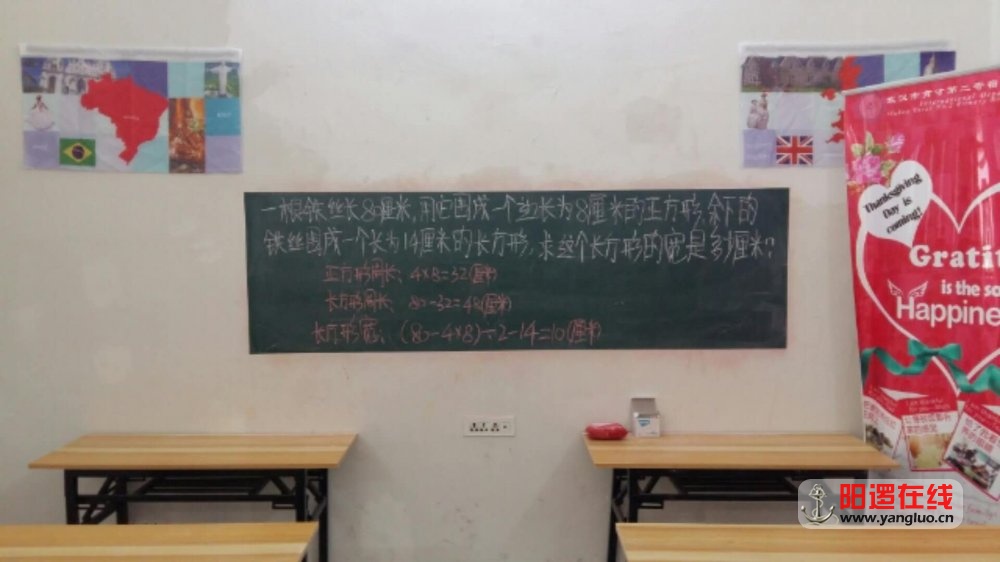 一根铁丝长80厘米,用它围成一个边长为8厘米的正方形,余下的
铁丝围成一个长为14厘米的长方形,求这个长方形的宽是多少厘米?
正方形周长: 4×8=32(厘米)
长方形周长: 80-32=48(厘米)
长方形宽: (80-4×8)÷2-14=10(厘米)
武汉市育才第二寄宿
International Dep
Thanksgiving
Day is
coming!
Gratit
is the so
Happine
阳逻在线
www.yangluo.cn